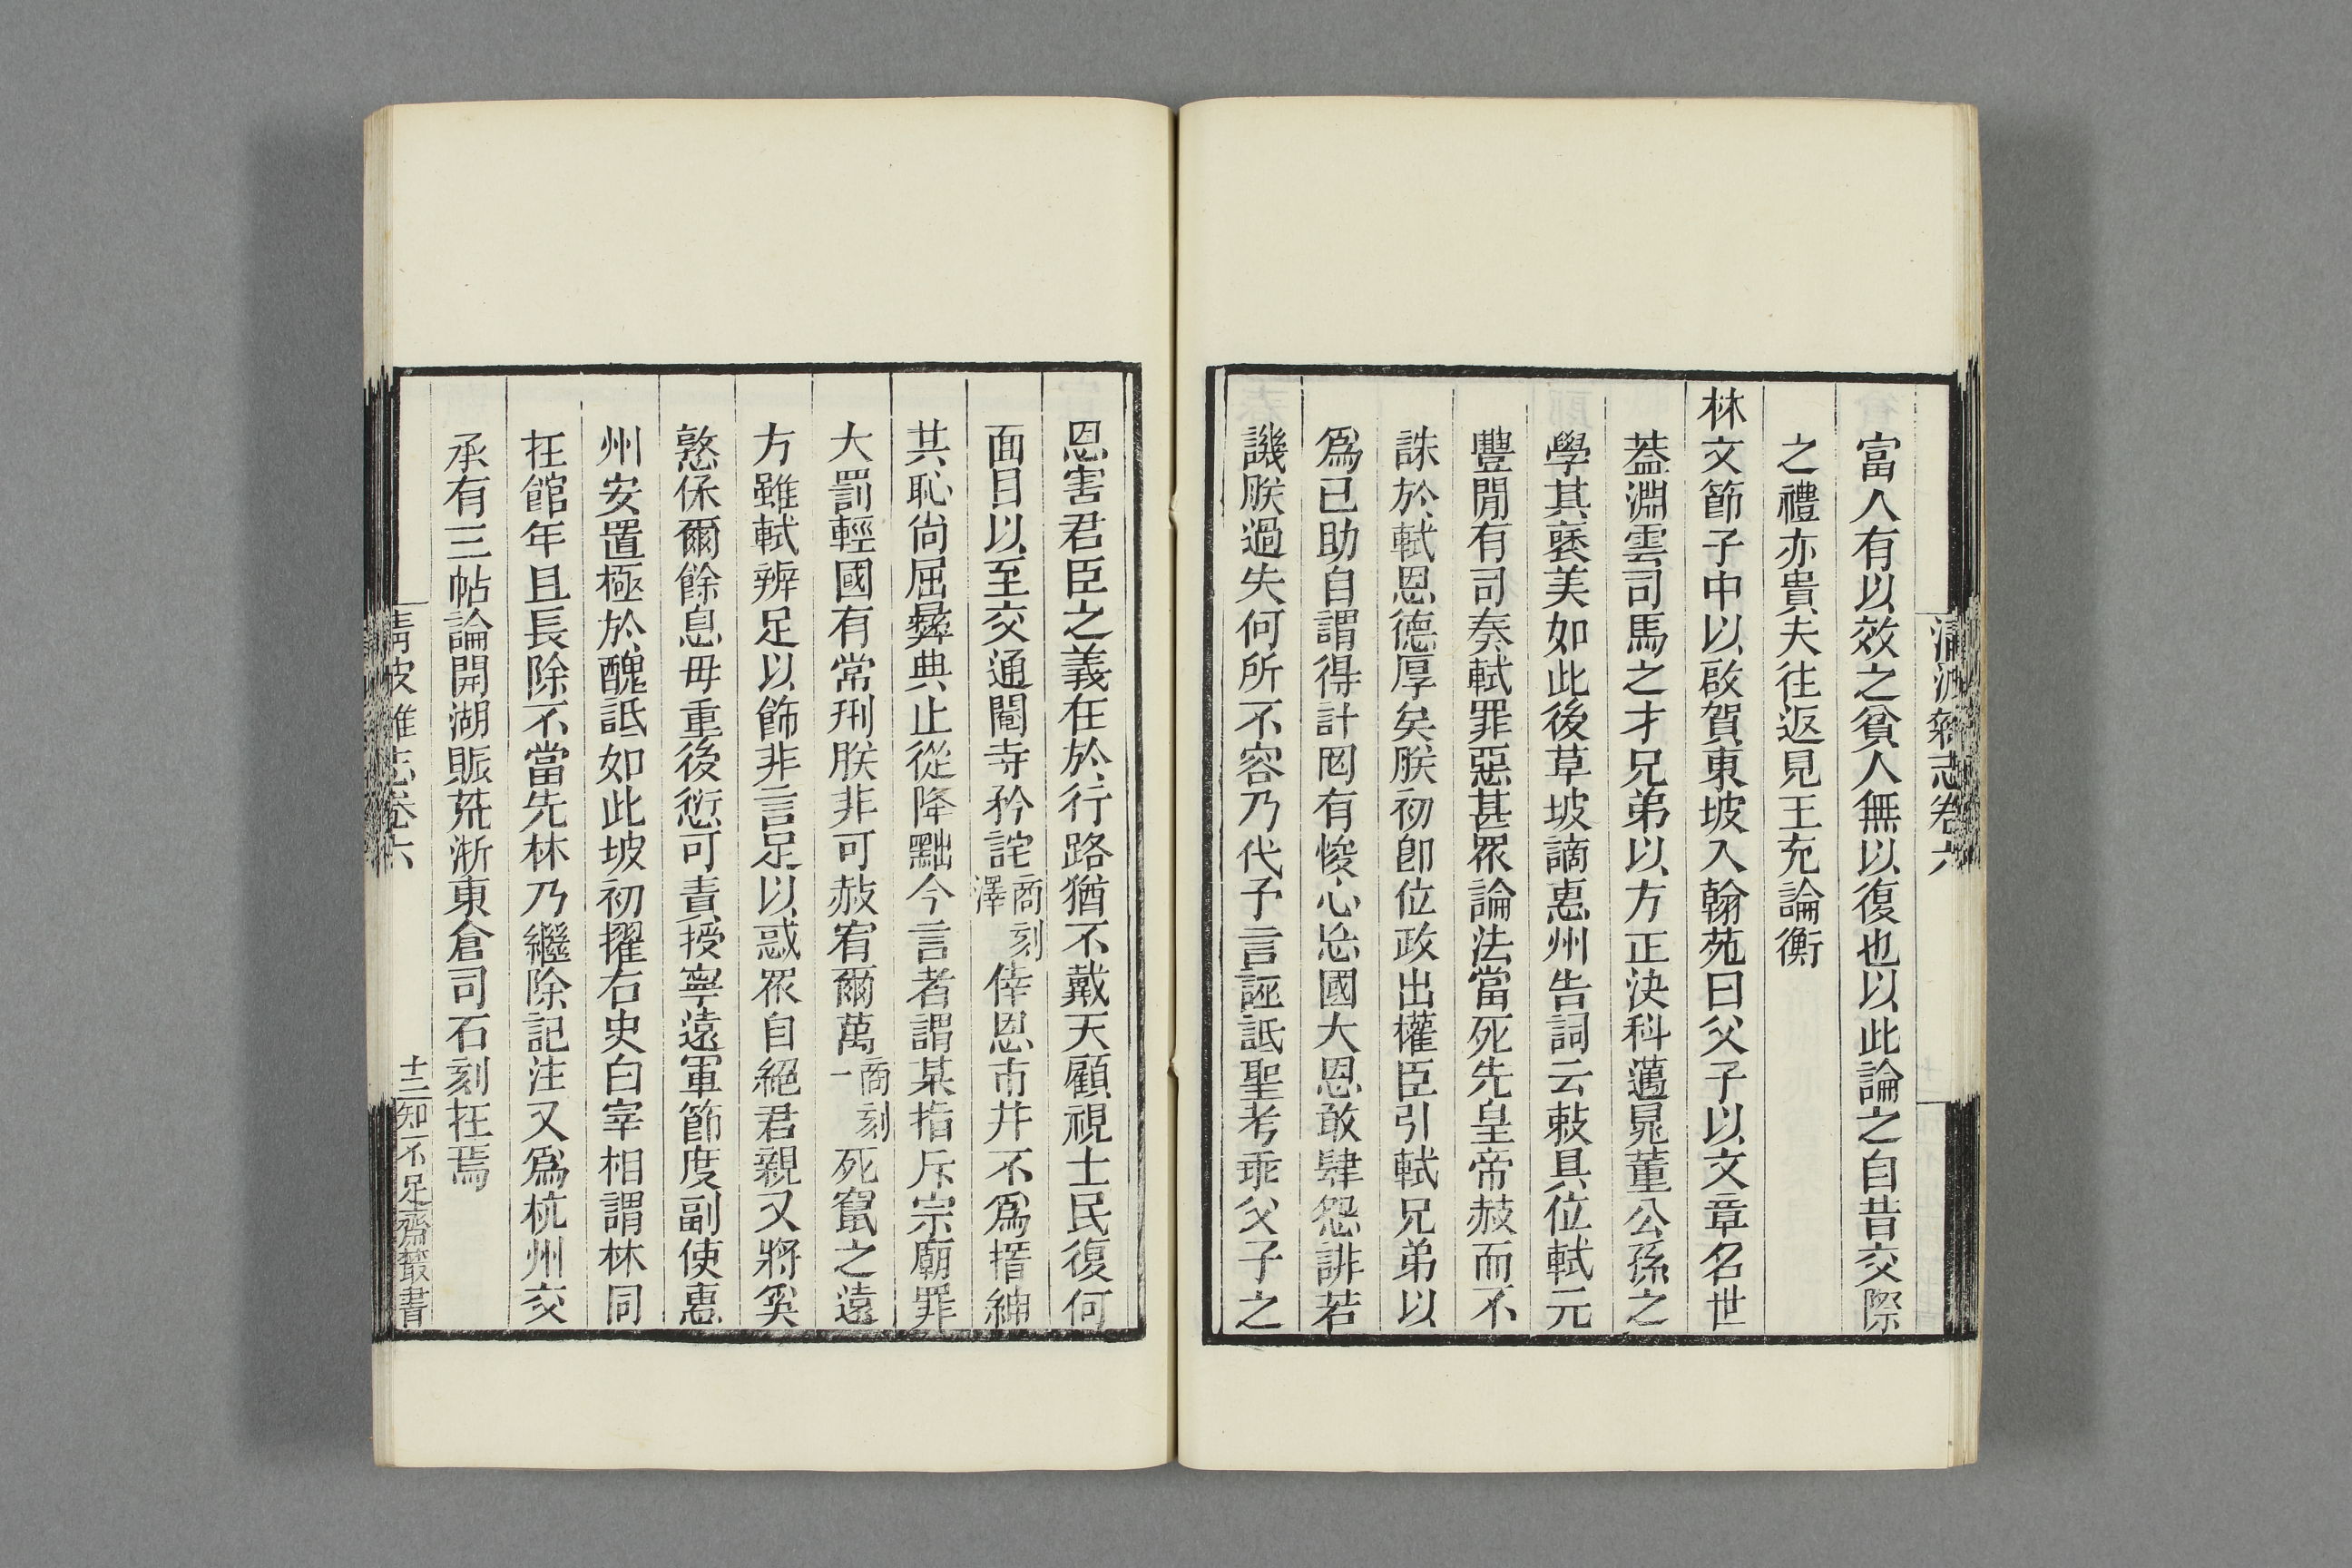 清波雜志卷六
富人有以效之貧人無以復也以此論之自昔交際
之禮亦貴夫往返見王充論衡
林文節子中以啟賀東坡入翰苑曰父子以文章名世
葢淵雲司馬之才兄弟以方正決科邁晁董公孫之
學其襃美如此後草坡謫惠州告詞云敕具位軾元
豐閒有司奏軾罪惡甚眾論法當死先皇帝赦而不
誅於軾恩德厚矣朕初卽位政出權臣引軾兄弟以
爲已助自謂得計罔有悛心忘國大恩敢肆怨誹若
譏朕過失何所不容乃代予言誣詆聖考乖父子之
恩害君臣之義在於行路猶不戴天顧視士民復何
面目以至交通閹寺矜詫商刻澤倖恩市井不爲搢紳
共恥尙屈彝典止從降黜今言者謂某指斥宗廟罪
大罰輕國有常刑朕非可赦宥爾萬商刻一死竄之遠
方雖軾辨足以飾非言足以惑眾自絕君親又將奚
憝保爾餘息毋重後愆可責授寧遠軍節度副使惠
州安置極於醜詆如此坡初擢右史白宰相謂林同
在館年且長除不當先林乃繼除記注又爲杭州交
承有三帖論開湖賑荒浙東倉司石刻在焉
清波雜志卷六
十三
知不足齋叢書